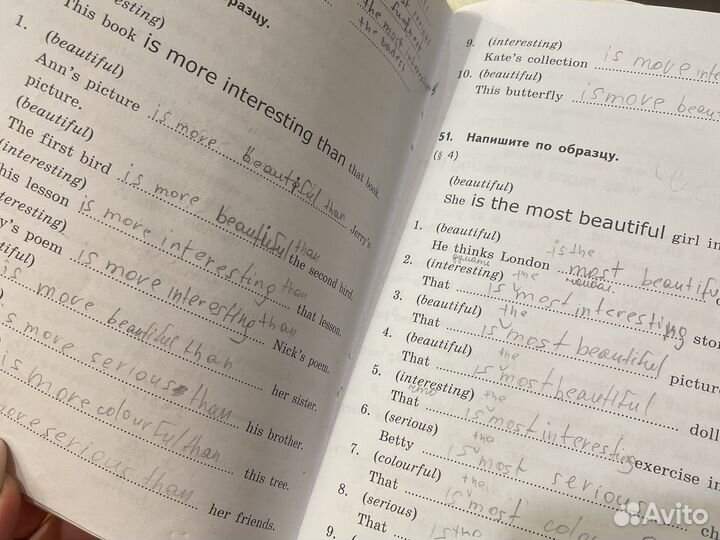 the most
бразцу.
(interesting)
This book is more interesting than that book.
1. (beautiful)
Ann's picture is more beautiful than Jerry's
picture.
(beautiful)
The first bird is more beautiful than the second bird.
(interesting)
his lesson is more interesting than that lesson.
teresting)
y's poem is more interesting than Nick's poem.
tiful)
is more beautiful than her sister.
s more serious than his brother.
is more colourful than this tree.
more serious than her friends.
9. (interesting)
Kate's collection is more inte
10. (beautiful)
This butterfly is more beau
51. Напишите по образцу.
(§ 4)
(beautiful)
She is the most beautiful girl in
1. (beautiful)
is the
He thinks London most beautiful
2. (interesting) the
That is most interesting stor
3. (beautiful) the
That is most beautiful pictur
4. (beautiful) the
That is most beautiful doll
5. (interesting) the
That is most interesting exercise in
6. (serious) the
Betty is most serious
7. (colourful) the
That is most colou ch
8. (serious)
That is the
9. (
Avito